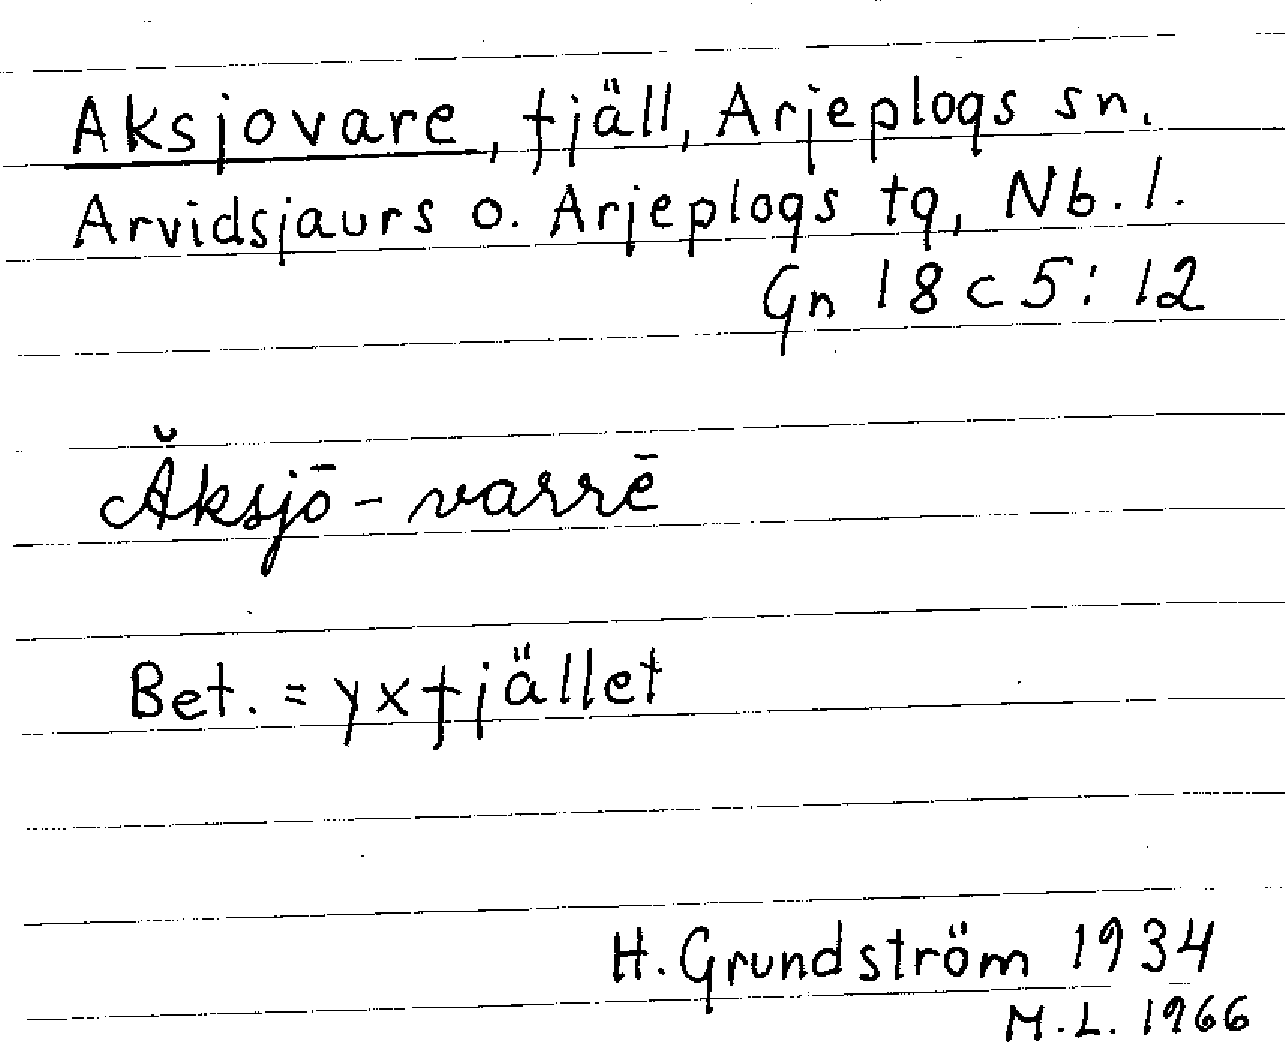 Aksjovare, fjäll, Arjeplogs sn.
Arvidsjaurs o. Arjeplogs tg, Nb. l.
Gn 18 c 5: 12
Ăksjō - varrē
Bet. = yxfjället
H. Grundström 1934
M. L. 1966